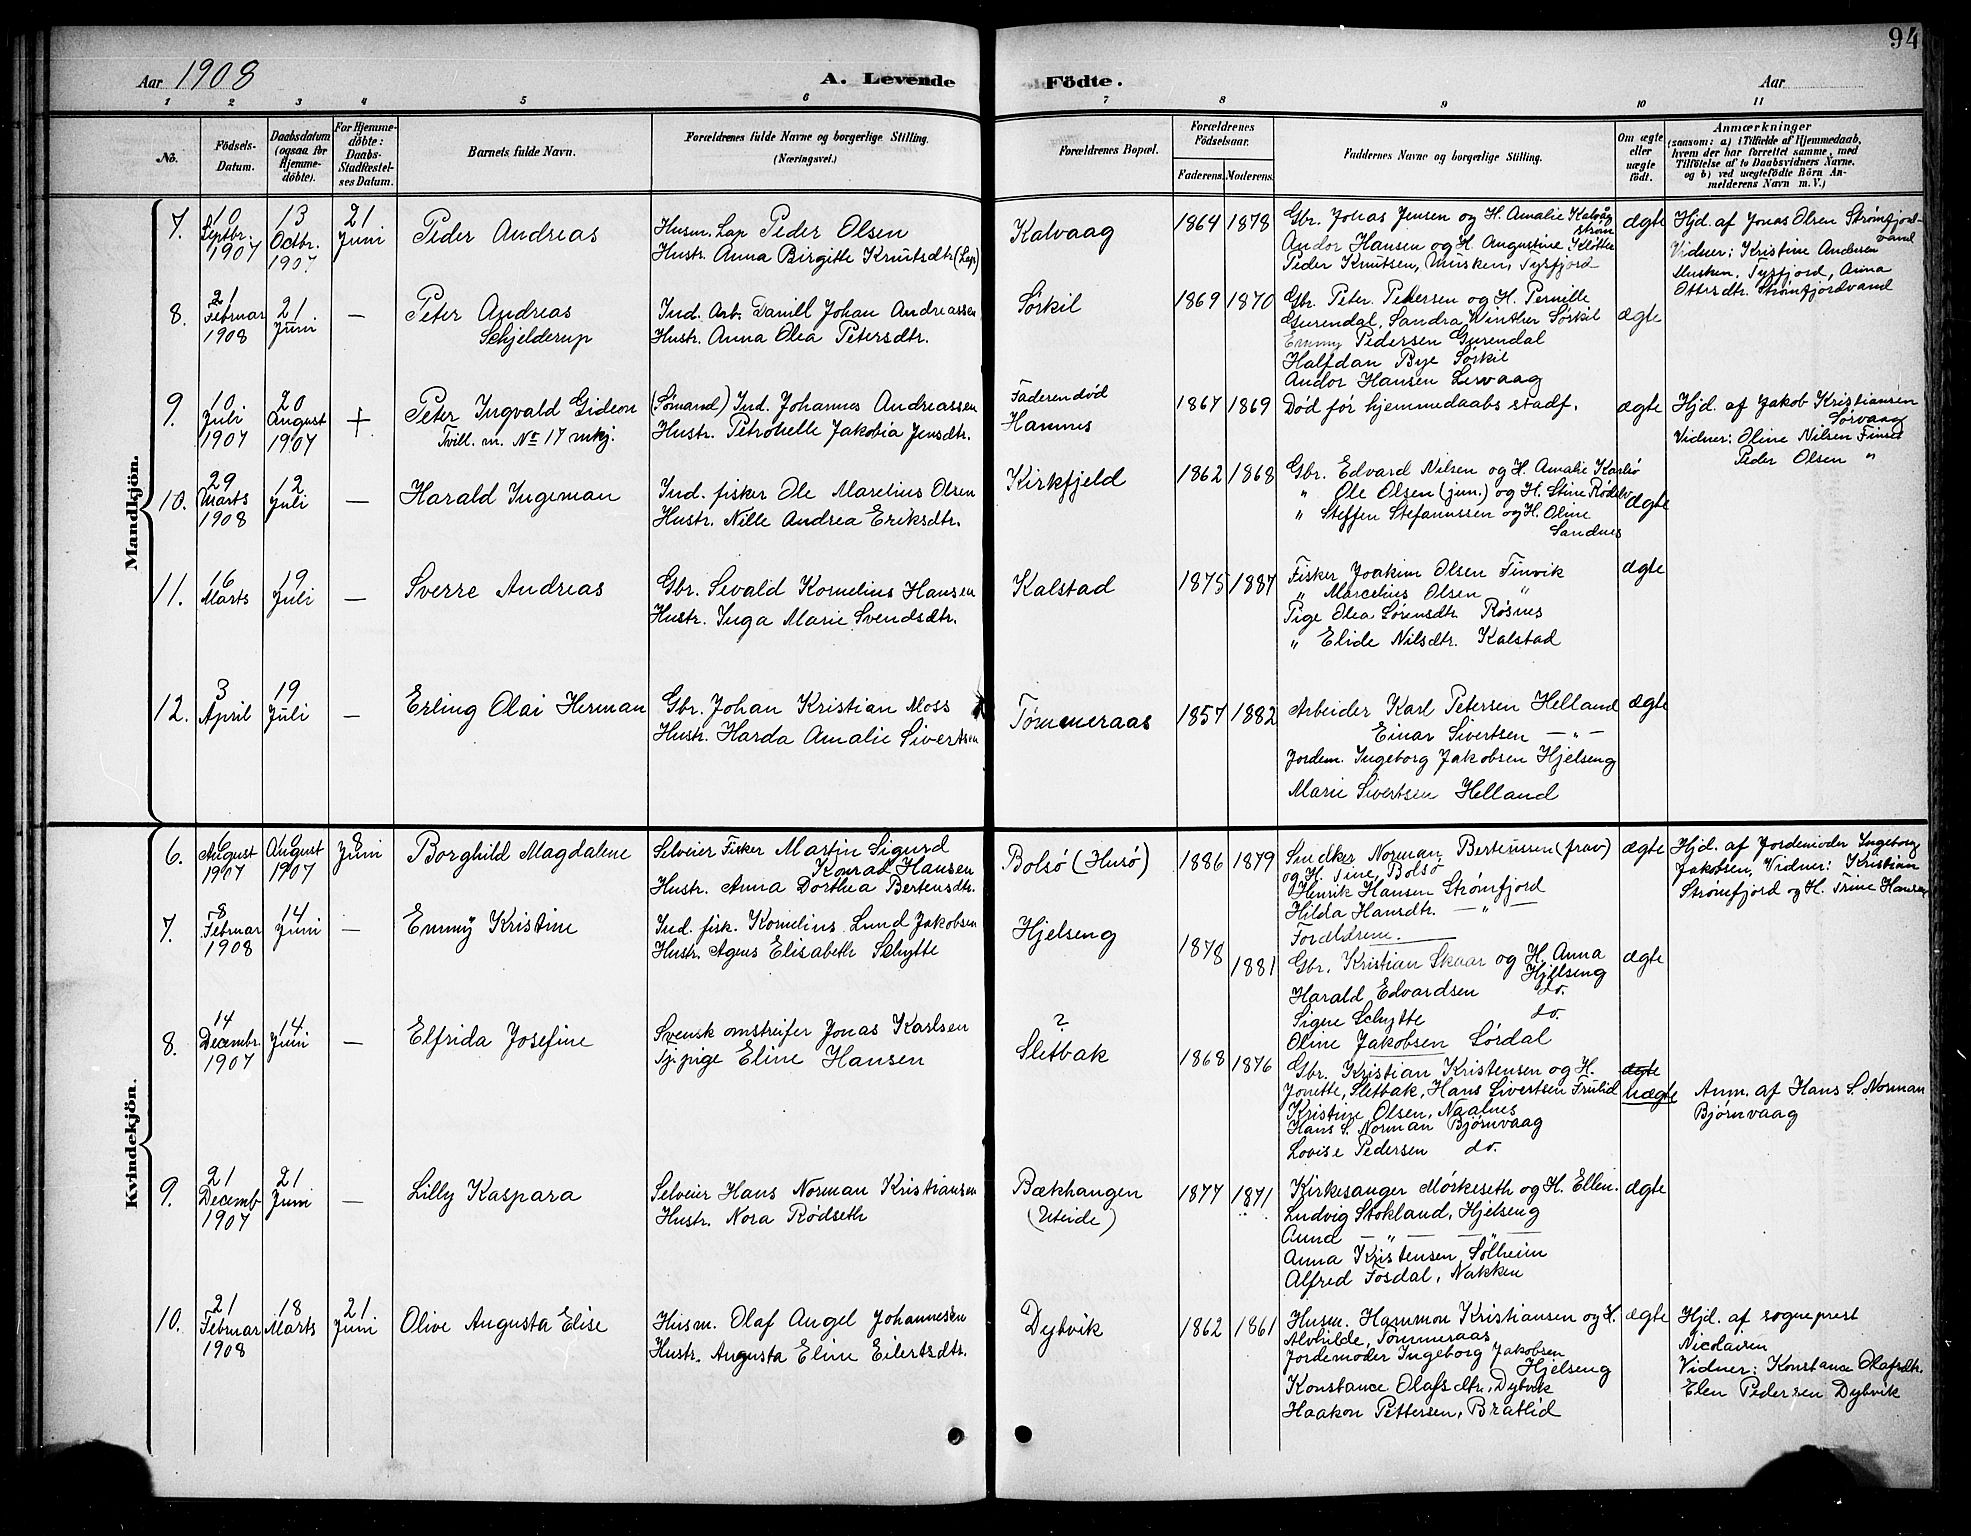 94
Aar 1908
A. Levende Födte.
Aar
1 2 3 4 5 6 7 8 9 10 11
No.
Födsels-
Datum.
Daabsdatum
(ogsaa for
Hjemme-
döbte).
For Hjemme-
döbte:
Daabs-
Stadfæstel-
ses Datum.
Barnets fulde Navn.
Forældrenes fulde Navne og borgerlige Stilling.
(Næringsvei.)
Forældrenes Bopæl.
Forældrenes
Födselsaar.
Faderens. Moderens.
Faddernes Navne og borgerlige Stilling.
Om ægte
eller
uægte
födt.
Anmærkninger
(saasom: a) i Tilfælde af Hjemmedaab,
hvem der har forrettet samme, med
Tilföielse af to Daabsvidners Navne,
og b) ved uægtefödte Börn An-
melderens Navn m. V.)
Mandkjön.
7.
10
Septbr.
1907
13
Octbr.
1907
21
Juni
Peder Andreas
Husm. Lap Peder Olsen
Hustr. Anna Birgitte Knutsdtr (Lap)
Kalvaag
1864 1878
Gbr. Jonas Jensen og H. Amalie Kalvåg
strøm
Andor Hansen og H. Augustine Kløtten
Peder Knutsen, Musken, Tysfjord
ægte
Hjd. af Jonas Olsen Strømfjord-
vand
Vidner: Kristine Andersen
Musken, Tysfjord, Anna
Ottersdtr. Strømfjordvand
8.
21
Februar
1908
21
Juni
—
Peter Andreas
Schjelderup
Ind. Arb. Daniel Johan Andreassen
Hustr. Anna Olea Petersdtr.
Sørkil
1869 1870
Gbr. Peter Pedersen og H. Pernille
Gurendal, Sandra Winther Sørkil
Emmy Pedersen Gurendal
Halfdan Bye Sørkil
Andor Hansen Lervaag
ægte
9.
10
Juli
1907
20
August
1907
+
Peter Ingvald Gideon
Tvill. m. No 17 mkj.
(Sømand) Ind. Johannes Andreassen
Hustr. Petronelle Jakobia Jensdtr.
Faderen død
Hamnes
1867 1869
Død før hjemmedaabs stadf.
ægte
Hjd. af Jakob Kristiansen
Sørvaag
Vidner: Oline Nilsen Finset
Peder Olsen "
10.
29
Marts
1908
12
Juli
—
Harald Ingeman
Ind. fisker Ole Marelius Olsen
Hustr. Nille Andrea Eriksdtr.
Kirkfjeld
1862 1868
Gbr. Edvard Nilsen og H. Amalie Karlsø
" Ole Olsen (jun.) og H. Stine Rødelv
" Steffen Stefanussen og H. Oline
Sandnes
ægte
11.
16
Marts
19
Juli
—
Sverre Andreas
Gbr. Sivald Kornelius Hansen
Hustr. Inga Marie Svendsdtr.
Kalstad
1875 1887
Fisker Joakim Olsen Finvik
" Marcelius Olsen "
Pige Olea Sørensdtr. Røsnes
" Elide Nilsdtr. Kalstad
ægte
12.
3
April
19
Juli
—
Erling Olai Herman
Gbr. Johan Kristian Moss
Hustr. Harda Amalie Sivertsen
Tømmeraas
1857 1882
Arbeider Karl Petersen Helland
Einar Sivertsen — " —
Jordem. Ingeborg Jakobsen Hjelseng
Marie Sivertsen Helland
ægte
Kvindekjön.
6.
6
August
1907
9
August
1907
8
Juni
Borghild Magdalene
Selveier Fisker Martin Sigurd
Konrad Hansen
Hustr. Anna Dorthea Bertensdtr.
Bolsø (Husø)
1886 1879
Snedker Norman Berteussen (frav)
og H. Tine, Bolsø
Henrik Hansen Strømfjord
Hilda Hansdtr. — " —
Forældrene.
ægte
Hjd. af Jordemoder Ingeborg
Jakobsen, Vidner: Kristian
Strømfjord og H. Trine Hansen
7.
8
Februar
1908
14
Juni
—
Emmy Kristine
Ind. fisk. Kornelius Lund Jakobsen
Hustr. Agnes Elisabeth Schytte
Hjelseng
1878
1881
Gbr. Kristian Skaar og H. Anna
Hjelseng
Harald Edvardsen do.
Signe Schytte do.
Oline Jakobsen Sørdal
ægte
8.
14
Decembr.
1907
14
Juni
—
Elfrida Josefine
Svensk omstreifer Jonas Karlsen
Tj. pige Eline Hansen
?
Sletbak
1868 1876
Gbr. Kristian Kristensen og H.
Jonette, Sletbak, Hans Sivertsen Frulid
Kristine Olsen, Naalnes
Hans S. Norman Bjørnvaag
Lovise Pedersen do.
ægte
uægte
Anm. af Hans S. Norman
Bjørnvaag
9.
21
Decemb
1907
21
Juni
—
Lilly Kaspara
Selveier Hans Norman Kristiansen
Hustr. Nora Rødseth
Bækhangen
(Uteide)
1877 1871
Kirkesanger Mørkeseth og H. Ellen.
Ludvig Stokland, Hjelseng
Aund — " — — " —
Anna Kristensen Solheim
Alfred Fosdal, Nakken
ægte
10.
21
Februar
1908
18
Marts
21
Juni
Olive Augusta Elise
Husm. Olaf Angel Johannesen
Hustr. Augusta Eline Eilertsdtr.
Dybvik
1862 1861
Husm. Hammon Kristiansen og H.
Alvhilde, Tømmeraas
Jordemoder Ingeborg Jakobsen
Hjelseng
Konstance Olafsdtr., Dybvik
Haakon Pettersen, Bratlid
ægte
Hjd. af sogneprest
Nicolaisen
Vidner: Konstance Olafsdtr.
Elen Pedersen Dybvik